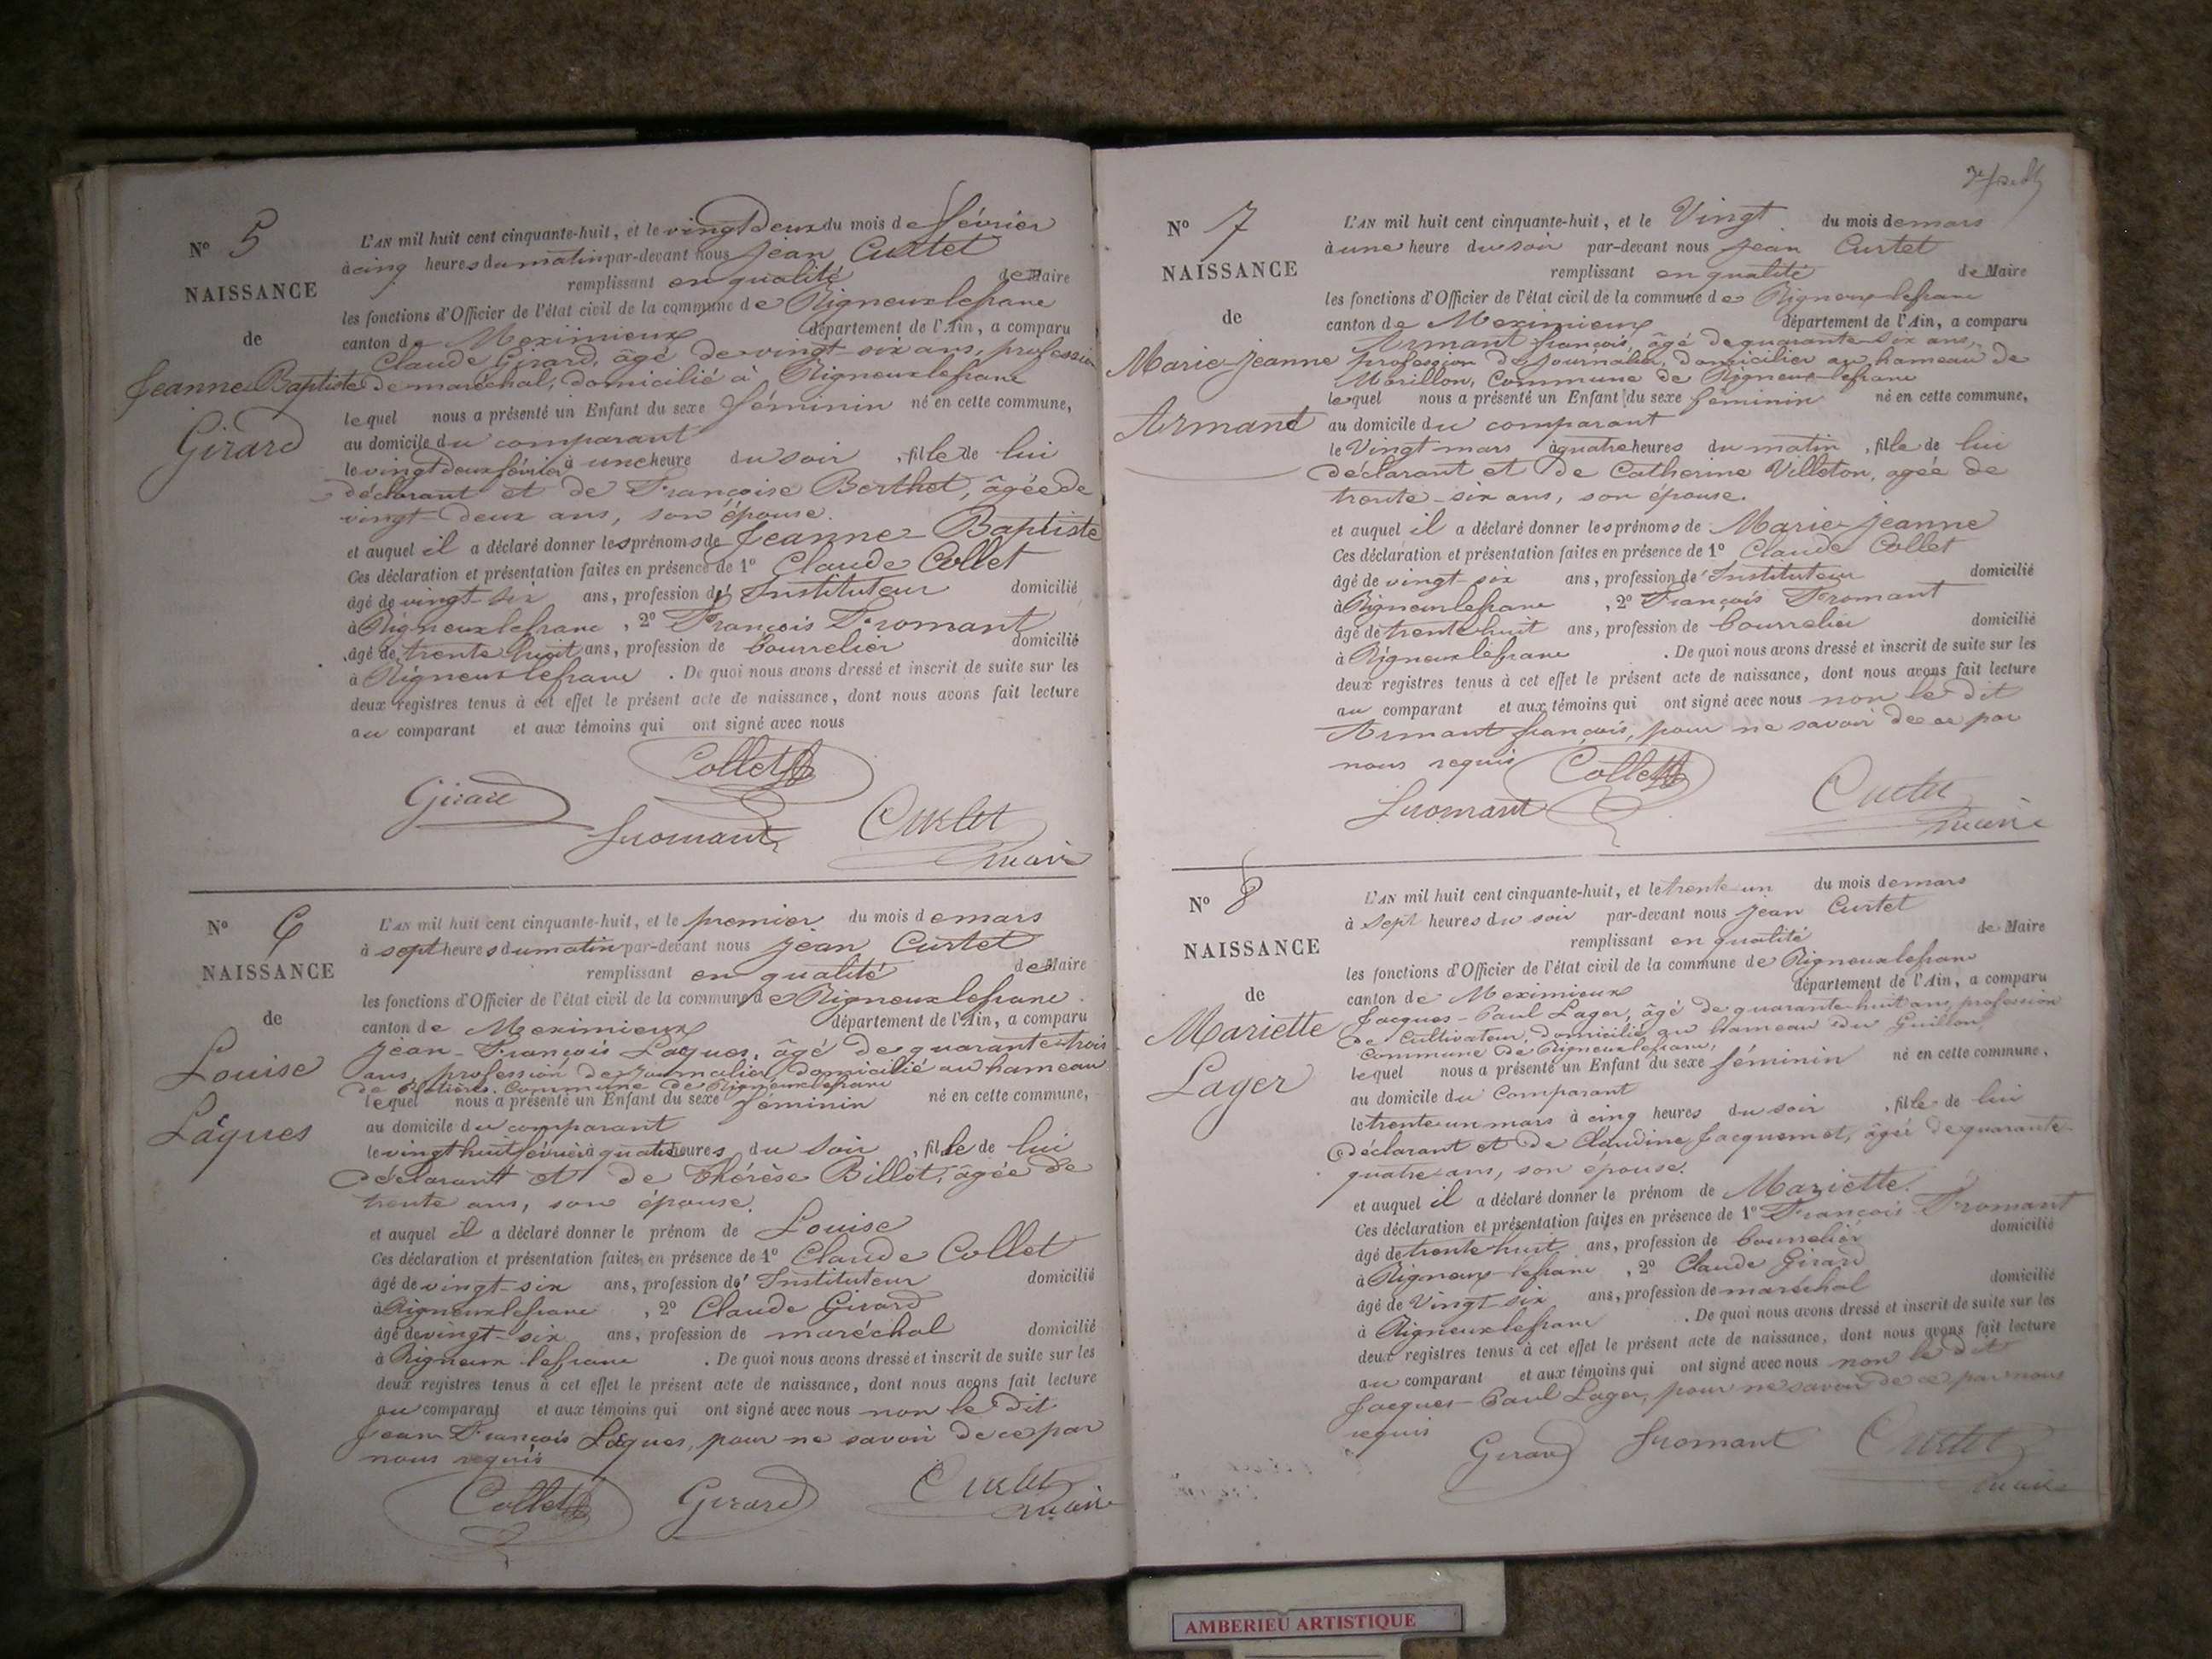 N° 5
NAISSANCE
de
Jeanne Baptiste
Girard
L'AN mil huit cent cinquante-huit, et le vingt deux du mois de février
à cinq heures du matin par-devant nous Jean Curtet
remplissant en qualité de Maire
les fonctions d'Officier de l'état civil de la commune de Rigneux lefranc
canton de Meximieux département de l'Ain, a comparu
Claude Girard, âgé de vingt-six ans, profession
de maréchal, domicilié à Rigneux lefranc
lequel nous a présenté un Enfant du sexe féminin né en cette commune,
au domicile du comparant
le vingt deux février à une heure du soir, fille de lui
déclarant et de Françoise Berthet, âgée de
vingt-deux ans, son épouse.
et auquel il a déclaré donner les prénoms de Jeanne-Baptiste
Ces déclaration et présentation faites en présence de 1° Claude Collet
âgé de vingt-six ans, profession d' Instituteur domicilié
à Rigneux lefranc, 2° François Fromant
âgé de trente huit ans, profession de bourrelier domicilié
à Rigneux lefranc. De quoi nous avons dressé et inscrit de suite sur les
deux registres tenus à cet effet le présent acte de naissance, dont nous avons fait lecture
au comparant et aux témoins qui ont signé avec nous
Collet
Girard
Fromant
Curtet
maire
N° 6
NAISSANCE
de
Louise
Làques
L'AN mil huit cent cinquante-huit, et le premier du mois de mars
à sept heures du matin par-devant nous Jean Curtet
remplissant en qualité de Maire
les fonctions d'Officier de l'état civil de la commune de Rigneux lefranc.
canton de Meximieux département de l'Ain, a comparu
Jean-François Làques, âgé de quarante-trois
ans, profession de Journalier, domicilié au hameau
de commune de Rigneux lefranc
lequel nous a présenté un Enfant du sexe féminin né en cette commune,
au domicile du comparant
le vingt huit février à quatre heures du soir, fille de lui
déclarant et de Thérèse Billot, âgée de
trente ans, son épouse.
et auquel il a déclaré donner le prénom de Louise
Ces déclaration et présentation faites en présence de 1° Claude Collet
âgé de vingt-six ans, profession d' Instituteur domicilié
à Rigneux lefranc, 2° Claude Girard
âgé de vingt-six ans, profession de maréchal domicilié
à Rigneux lefranc. De quoi nous avons dressé et inscrit de suite sur les
deux registres tenus à cet effet le présent acte de naissance, dont nous avons fait lecture
au comparant et aux témoins qui ont signé avec nous non le dit
Jean François Làques, pour ne savoir de ce par
nous requis
Collet Girard Curtet
maire
N° 7
NAISSANCE
de
Marie-Jeanne
Armand
L'AN mil huit cent cinquante-huit, et le Vingt du mois de mars
à une heure du soir par-devant nous Jean Curtet
remplissant en qualité de Maire
les fonctions d'Officier de l'état civil de la commune de Rigneux-lefranc
canton de Meximieux département de l'Ain, a comparu
Armant françois, âgé de quarante-six ans,
profession de Journalier, domicilier au hameau de
Morillon, Commune de Rigneux-lefranc
lequel nous a présenté un Enfant du sexe féminin né en cette commune,
au domicile du comparant
le Vingt mars à quatre heures du matin, fille de lui
déclarant et de Catherine Villeton, agée de
trente-six ans, son épouse.
et auquel il a déclaré donner les prénoms de Marie-Jeanne
Ces déclaration et présentation faites en présence de 1° Claude Collet
âgé de vingt-six ans, profession d' Instituteur domicilié
à Rigneux lefranc, 2° François Fromant
âgé de trente huit ans, profession de bourrelier domicilié
à Rigneux lefranc. De quoi nous avons dressé et inscrit de suite sur les
deux registres tenus à cet effet le présent acte de naissance, dont nous avons fait lecture
au comparant et aux témoins qui ont signé avec nous non le dit
Armant françois, pour ne savoir de ce par
nous requis
Collet
Fromant
Curtet
maire
N° 8
NAISSANCE
de
Mariette
Lager
L'AN mil huit cent cinquante-huit, et le trente-un du mois de mars
à sept heures du soir par-devant nous Jean Curtet
remplissant en qualité de Maire
les fonctions d'Officier de l'état civil de la commune de Rigneux lefranc
canton de Meximieux département de l'Ain, a comparu
Jacques-Paul Lager, âgé de quarante-huit ans, profession
de Cultivateur, domicilié au hameau du Guillon,
commune de Rigneux lefranc,
lequel nous a présenté un Enfant du sexe féminin né en cette commune,
au domicile du Comparant
le trente un mars à cinq heures du soir, fille de lui
déclarant et de Claudine Jacquemet, âgée de quarante-
quatre ans, son épouse.
et auquel il a déclaré donner le prénom de Mariette.
Ces déclaration et présentation faites en présence de 1° François Fromant
âgé de trente huit ans, profession de bourrelier domicilié
à Rigneux-lefranc, 2° Claude Girard
âgé de Vingt six ans, profession de maréchal domicilié
à Rigneux lefranc. De quoi nous avons dressé et inscrit de suite sur les
deux registres tenus à cet effet le présent acte de naissance, dont nous avons fait lecture
au comparant et aux témoins qui ont signé avec nous non le dit
Jacques-Paul Lager, pour ne savoir de ce par nous
requis
Girard Fromant Curtet
maire
AMBERIEU ARTISTIQUE